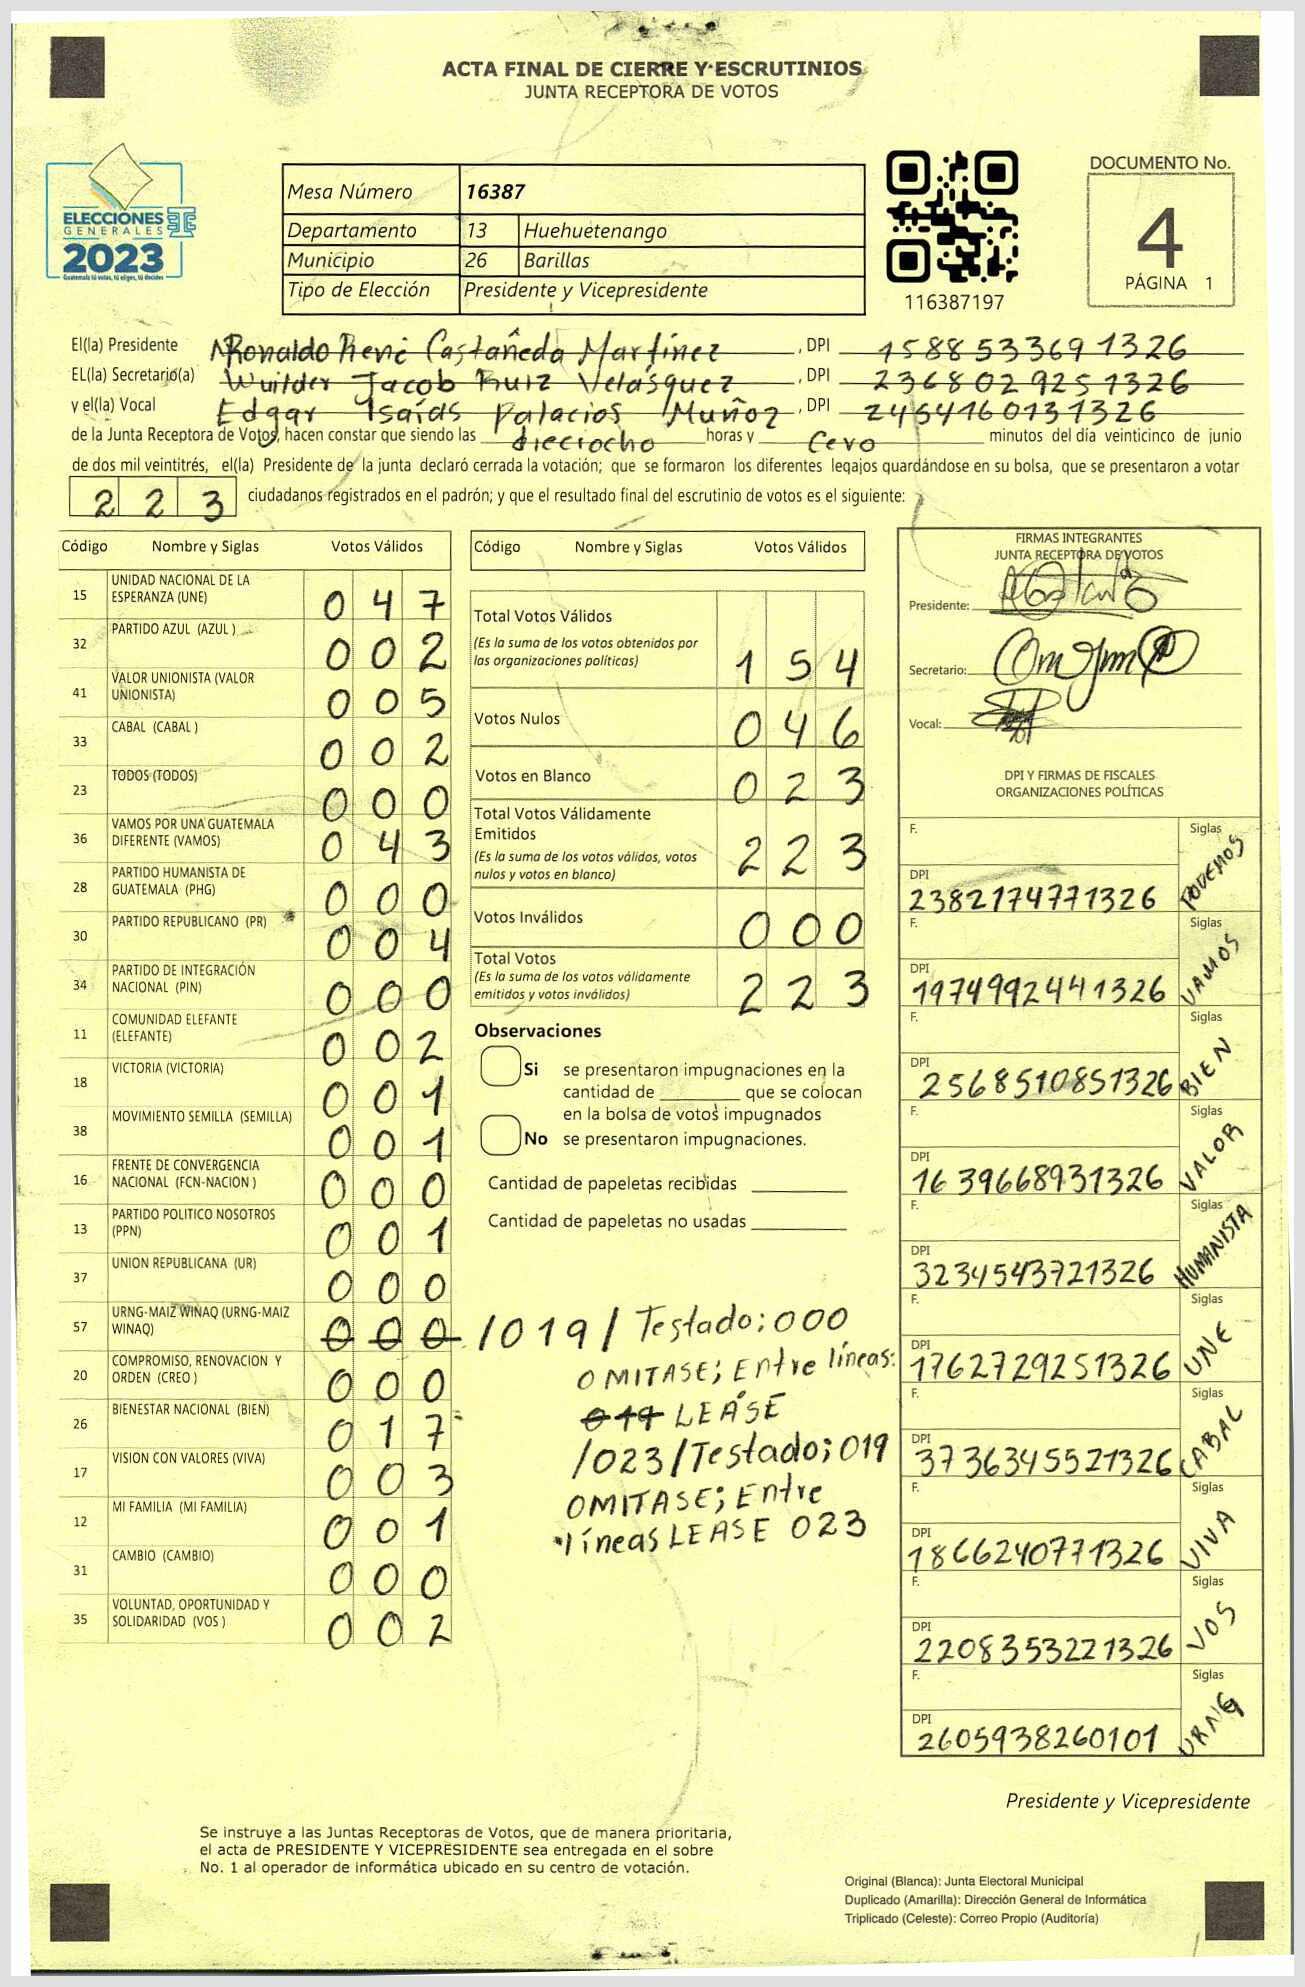 ACTA FINAL DE CIERRE Y ESCRUTINIOS
JUNTA RECEPTORA DE VOTOS
ELECCIONES
GENERALES
2023
Guatemala tú votas, tú eliges, tú decides
Mesa Número 16387
Departamento 13 Huehuetenango
Municipio 26 Barillas
Tipo de Elección Presidente y Vicepresidente
116387197
DOCUMENTO No.
4
PÁGINA 1
El(la) Presidente Ronaldo René Castañeda Martínez , DPI 1588533691326
EL(la) Secretario(a) Wuilder Jacob Ruiz Velásquez , DPI 2368029251326
y el(la) Vocal Edgar Isaías Palacios Muñoz , DPI 2454160131326
de la Junta Receptora de Votos, hacen constar que siendo las dieciocho horas y Cero minutos del día veinticinco de junio
de dos mil veintitrés, el(la) Presidente de la junta declaró cerrada la votación; que se formaron los diferentes legajos guardándose en su bolsa, que se presentaron a votar
223 ciudadanos registrados en el padrón; y que el resultado final del escrutinio de votos es el siguiente:
Código Nombre y Siglas Votos Válidos
15 UNIDAD NACIONAL DE LA ESPERANZA (UNE) 047
32 PARTIDO AZUL (AZUL ) 002
41 VALOR UNIONISTA (VALOR UNIONISTA) 005
33 CABAL (CABAL ) 002
23 TODOS (TODOS) 000
36 VAMOS POR UNA GUATEMALA DIFERENTE (VAMOS) 043
28 PARTIDO HUMANISTA DE GUATEMALA (PHG) 000
30 PARTIDO REPUBLICANO (PR) 004
34 PARTIDO DE INTEGRACIÓN NACIONAL (PIN) 000
11 COMUNIDAD ELEFANTE (ELEFANTE) 002
18 VICTORIA (VICTORIA) 001
38 MOVIMIENTO SEMILLA (SEMILLA) 001
16 FRENTE DE CONVERGENCIA NACIONAL (FCN-NACION ) 000
13 PARTIDO POLITICO NOSOTROS (PPN) 001
37 UNION REPUBLICANA (UR) 000
57 URNG-MAIZ WINAQ (URNG-MAIZ WINAQ) 000 /019/ Testado; 000
20 COMPROMISO, RENOVACION Y ORDEN (CREO ) 000
26 BIENESTAR NACIONAL (BIEN) 017
17 VISION CON VALORES (VIVA) 003
12 MI FAMILIA (MI FAMILIA) 001
31 CAMBIO (CAMBIO) 000
35 VOLUNTAD, OPORTUNIDAD Y SOLIDARIDAD (VOS ) 002
Código Nombre y Siglas Votos Válidos
Total Votos Válidos
(Es la suma de los votos obtenidos por
las organizaciones políticas) 154
Votos Nulos 046
Votos en Blanco 023
Total Votos Válidamente
Emitidos
(Es la suma de los votos válidos, votos
nulos y votos en blanco) 223
Votos Inválidos 000
Total Votos
(Es la suma de los votos válidamente
emitidos y votos inválidos) 223
Observaciones
Si se presentaron impugnaciones en la
cantidad de ________ que se colocan
en la bolsa de votos impugnados
No se presentaron impugnaciones.
Cantidad de papeletas recibidas
Cantidad de papeletas no usadas
OMITASE; Entre líneas:
019 LEASE
/023/Testado; 019
OMITASE; Entre
líneas LEASE 023
FIRMAS INTEGRANTES
JUNTA RECEPTORA DE VOTOS
Presidente:
Secretario:
Vocal:
DPI Y FIRMAS DE FISCALES
ORGANIZACIONES POLÍTICAS
F. Siglas
DPI 2382174771326 PODEMOS
F. Siglas
DPI 1974992441326 VAMOS
F. Siglas
DPI 2568510851326 BIEN
F. Siglas
DPI 1639668931326 VALOR
F. Siglas
DPI 3234543721326 HUMANISTA
F. Siglas
DPI 1762729251326 UNE
F. Siglas
DPI 3736345521326 CABAL
F. Siglas
DPI 1866240771326 VIVA
F. Siglas
DPI 2208353221326 VOS
F. Siglas
DPI 2605938260101 URNG
Presidente y Vicepresidente
Se instruye a las Juntas Receptoras de Votos, que de manera prioritaria,
el acta de PRESIDENTE Y VICEPRESIDENTE sea entregada en el sobre
No. 1 al operador de informática ubicado en su centro de votación.
Original (Blanca): Junta Electoral Municipal
Duplicado (Amarilla): Dirección General de Informática
Triplicado (Celeste): Correo Propio (Auditoría)